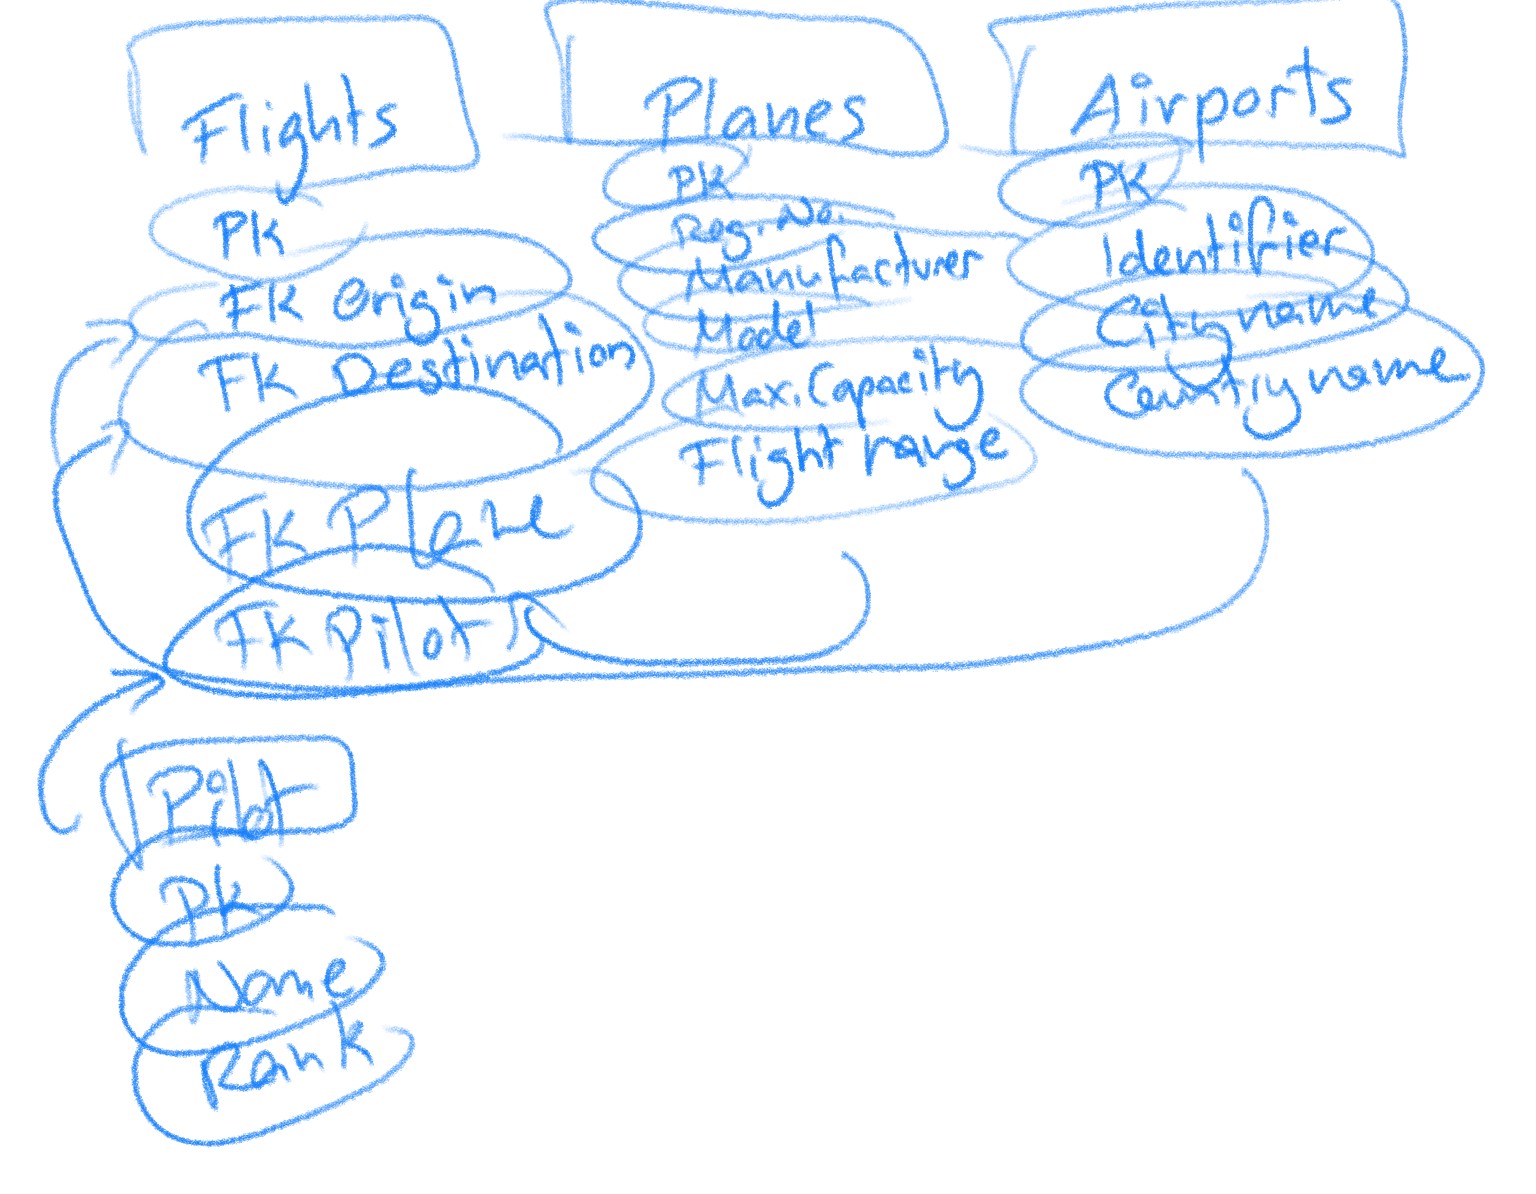 Flights
PK
FK Origin
FK Destination
FK Plane
FK Pilot
Planes
PK
Reg. No.
Manufacturer
Model
Max. Capacity
Flight range
Airports
PK
Identifier
City name
Country name
Pilot
PK
Name
Rank